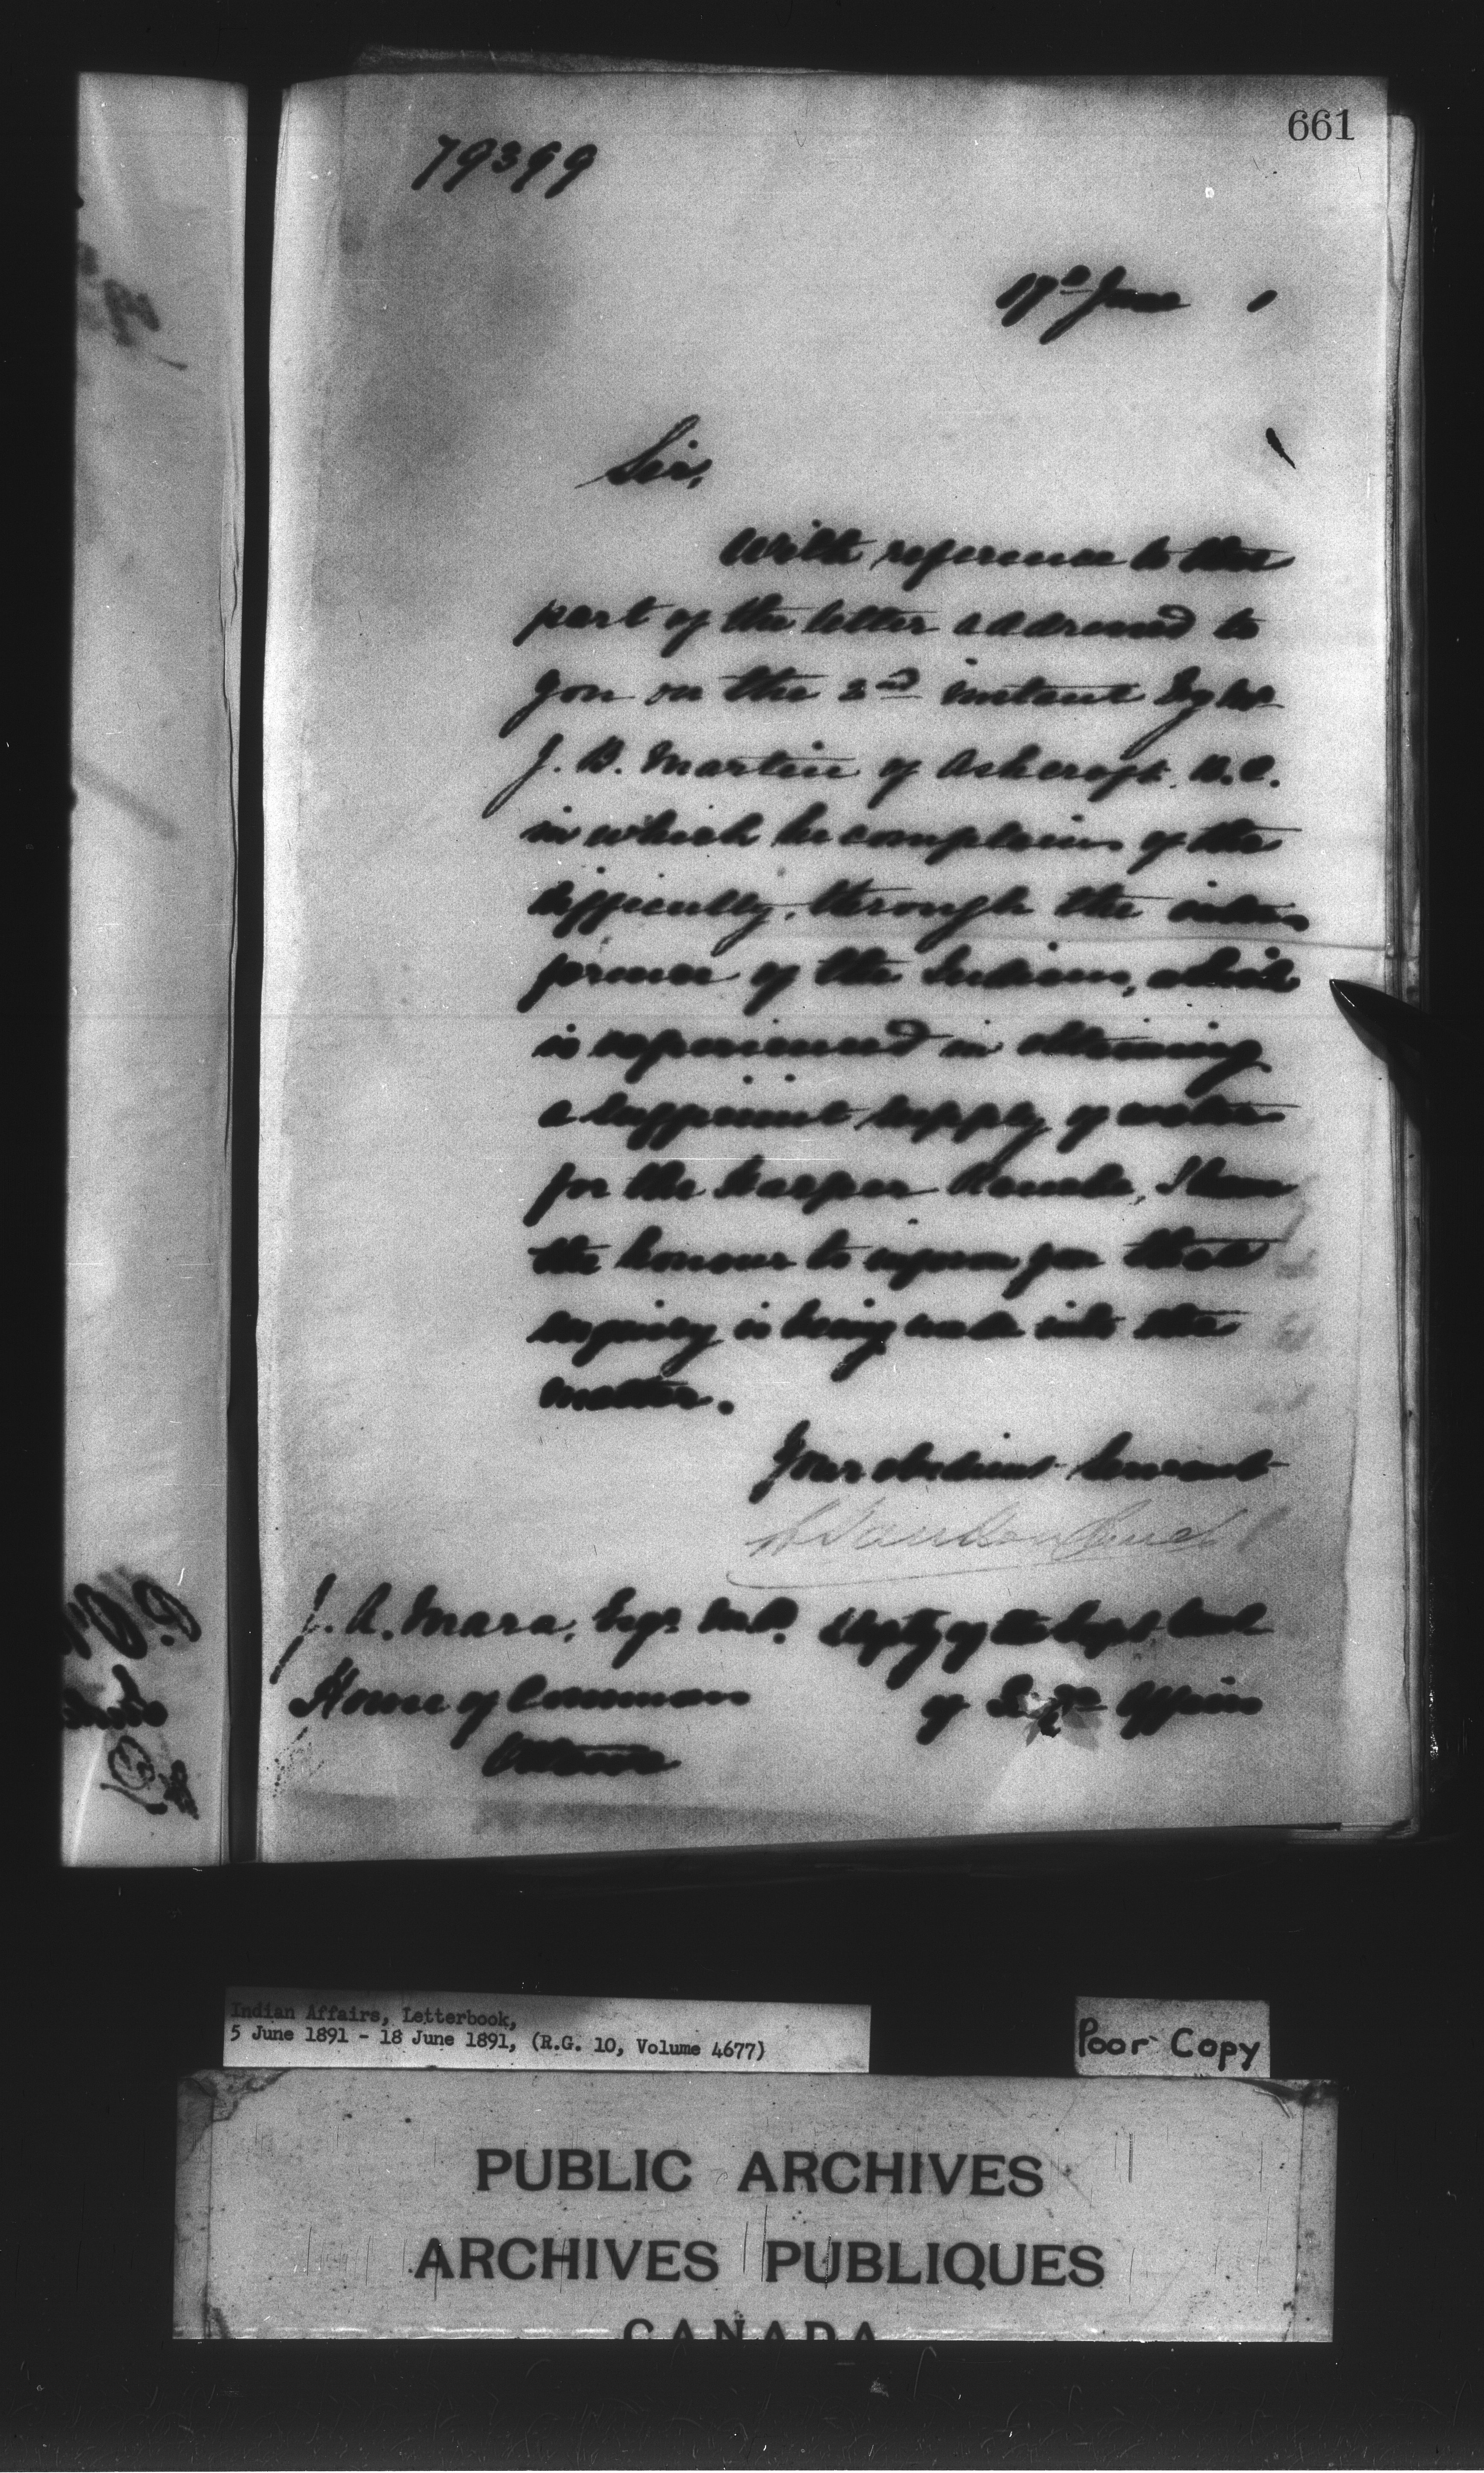 661
79399
17th June 1
Sir,
With reference to that
part of the letter addressed to
you on the 2nd instant by Mr
J. B. Martin of Ashcroft. B.C.
in which he complains of the
difficulty, through the inter
ference of the Indians, which
is experienced in obtaining
a sufficient supply of water
for the Harper Ranche, I have
the honour to inform you that
enquiry is being made into the
matter.
Your obedient Servant
L Vankoughnet
J. A. Mara, Esqr. M.P. Depty of the Supt. Genl
House of Commons of Affairs
Ottawa
Indian Affairs, Letterbook,
5 June 1891 - 18 June 1891, (R.G. 10, Volume 4677)
Poor Copy
PUBLIC ARCHIVES
ARCHIVES PUBLIQUES
CANADA